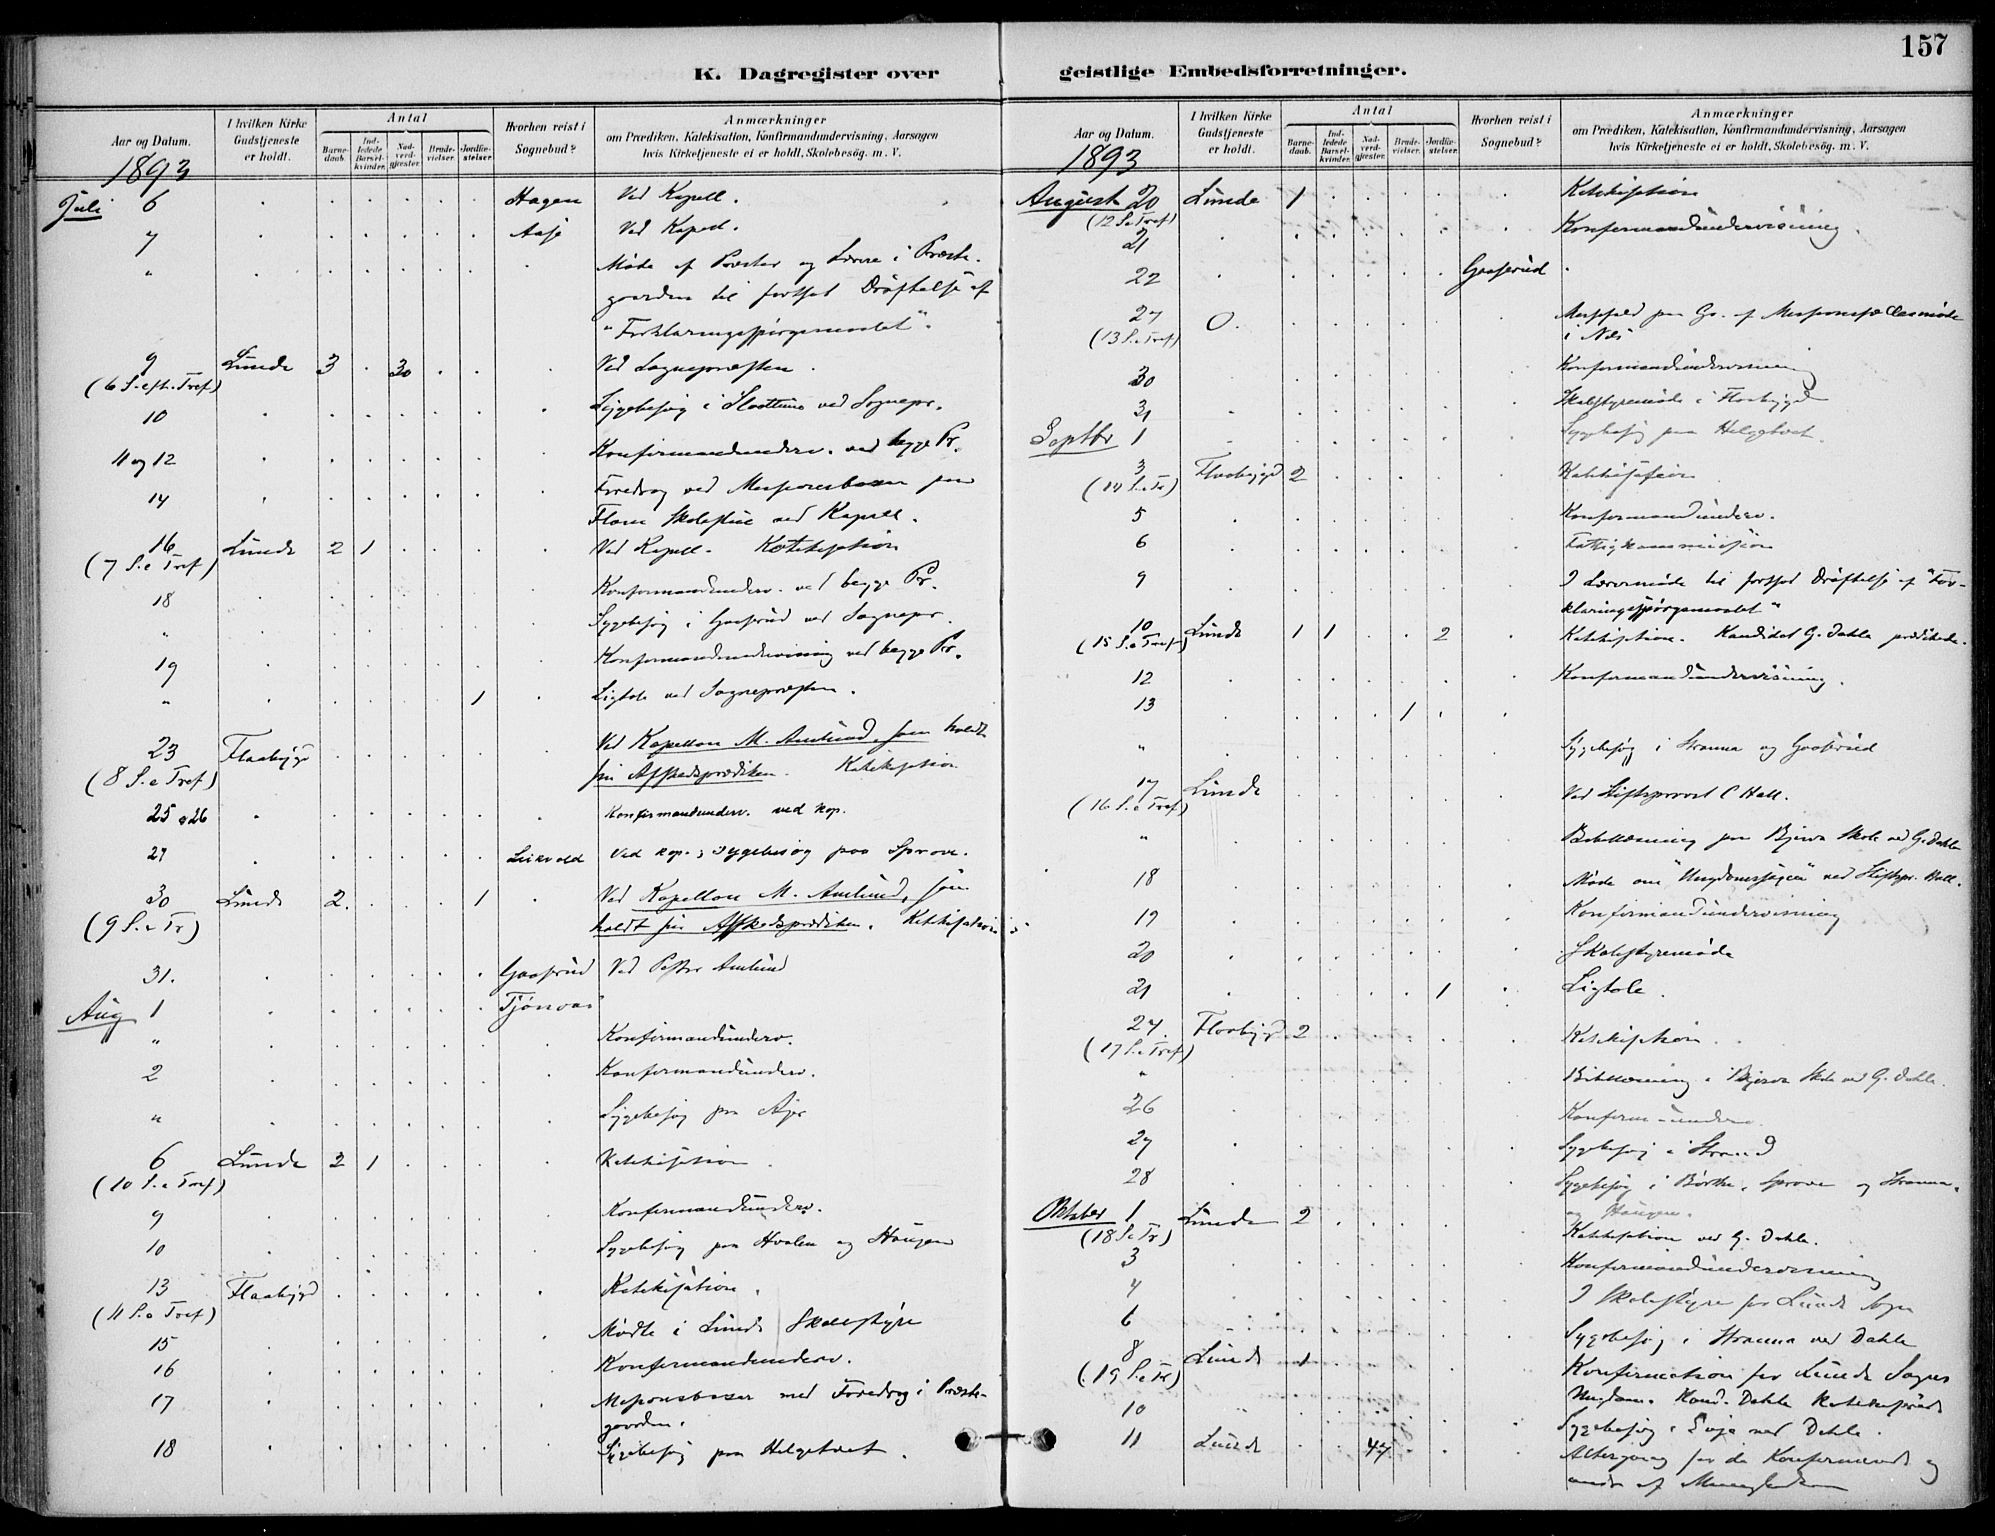 157
K. Dagregister over geistlige Embedsforretninger.
Aar og Datum.
I hvilken Kirke Gudstjeneste er holdt.
Antal
Barnedaab.
Indledede Barselkvinder.
Nadverdgjester.
Brudevielser.
Jordfæstelser.
Hvorhen reist i Sognebud?
Anmærkninger
om Prædiken, Katekisation, Konfirmandundervisning, Aarsagen
hvis Kirketjeneste ei er holdt, Skolebesög. m. V.
1893
Juli 6 Hagen Ved Kapell.
7 Aase Ved Kapell.
" Møde af Prester og Lærere i Præste-
gaarden til fortsat Drøftelse af
"Forklaringsspørgsmaalet".
9 Lunde 3 30 Ved Sognepræsten.
(6 S. eft. Tref)
10 Sygebesøg i ved Sognepr.
11 og 12 Konfirmandunderv. ved begge Pr.
14 Foredrag ved Missionsbasar paa
Skolestue ved Kapell.
16 Lunde 2 1 Ved Kapell. Katekisation
(7 S. e Tref)
18 Konfirmandunderv. ved begge Pr.
" Sygebesøg i Gaaserud ved Sognepr.
19 Konfirmandundervisning ved begge Pr.
" 1 Ligtale ved Sognepræsten.
23 Flaabygd Ved Kapellan M. Amlund, som holdt
(8 S. e Tref) sin Afskedsprædiken. Katekisation
25 o 26 Konfirmandunderv. ved Kap.
27 Leikvold Ved Kap. ; Sygebesøg paa Sprove.
30 Lunde 2. 1 Ved Kapellan M. Amlund, som
(9 S. e Tr) holdt sin Afskedsprædiken. Katekisation
31. Gaaserud Ved Pastor Amlund
Aug 1 Tjønnaas
" Konfirmandunderv.
2 Konfirmandunderv.
" Sygebesøg paa
6 Lunde 2 1 Katekisation.
(10 S. e Tref)
9 Konfirmandunderv.
10 Sygebesøg paa Hvalen og Haugen
13 Flaabygd Katekisation.
(11 S. e Tref)
15 Mødte i Lunde Skolestyre
16 Konfirmandunderv.
17 Missionsbasar med Foredrag i Præste-
gaarden.
18 Sygebesøg paa Helgetveit.
Aar og Datum.
I hvilken Kirke Gudstjeneste er holdt.
Antal
Barnedaab.
Indledede Barselkvinder.
Nadverdgjester.
Brudevielser.
Jordfæstelser.
Hvorhen reist i Sognebud?
Anmærkninger
om Prædiken, Katekisation, Konfirmandundervisning, Aarsagen
hvis Kirketjeneste ei er holdt, Skolebesög. m. V.
1893
August 20 Lunde 1 Katekisation
(12 S. e Tref)
21 Konfirmandundervisning.
22 Gaaserud
27 O. Messefald paa Gr. af
(13 S. e Tref) i Næs
30 Konfirmandundervisning
31 Skolestyremøde i Flaabygd
Septbr 1 Sygebesøg paa Helgetveit.
3 Flaabygd 2 Katekisation
(14 S. e Tr)
5 Konfirmandunderv.
6 Fattigkommission
9 I Lærermøde til fortsat Drøftelse af "For-
klaringsspørgsmaalet"
10 Lunde 1 1 2 Katekisation. Kandidat G. Dahle prædikede.
(15 S. e Tref)
12 Konfirmandundervisning.
13 1
" Sygebesøg i Stranna og Gaaserud
17 Lunde Ved Stiftsprovst C Hall.
(16 S. e Tref)
" Bibellæsning paa Bjerva Skole ved G. Dahle
18 Møde om "Ungdomssagen" ved Stiftspr. Hall.
19 Konfirmandundervisning
20 Skolestyremøde
21 1 Ligtale.
24. Flaabygd 2 Katekisation.
(17 S. e Tref)
" Bibellæsning i Bjerva Skole ved G. Dahle.
26 Konfirm-underv.
27 Sygebesøg i Strand
28 Sygebesøg i Børthe, Sprove og Stranna.
og Haugen.
Oktober 1 Lunde 2 Katekisation ved G. Dahle.
(18 S. e Tr)
3 Konfirmandundervisning
4 I Skolestyre for Lunde Sogn
6 Sygebesøg i Stranna ved Dahle
8 Lunde 1 Konfirmation for Lunde Sogns
(19 S. e Tr) Ungdom. Kand. Dahle
10 Sygebesøg i ved Dahle.
11 Lunde 47 Altergang for de Konfirmerede og
andre af Menigheden